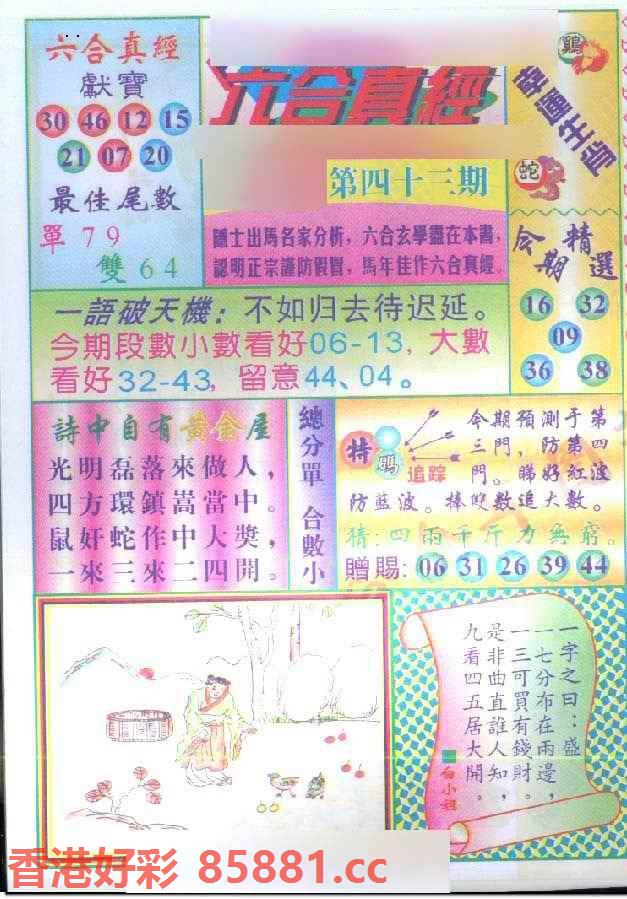 六合真經
獻寶
30 46 12 15
21 07 20
最佳尾數
單79
雙64
六合真經
第四十三期
隱士出馬名家分析，六合玄學盡在本書，
認明正宗謹防假冒，馬年佳作六合真經
鷄
蛇
今期精選
16 32
09
36 38
一語破天機：不如归去待迟延。
今期段數小數看好06-13，大數
看好32-43，留意44、04。
詩中自有黄金屋
光明磊落來做人，
四方環鎮嵩當中。
鼠奸蛇作中大獎，
一來三來二四開。
總分單 合數小
特碼
追踪
今期預測于第
三門，防第四
門。睇好紅波
防藍波。捧雙數追大數。
猜：四兩千斤力無窮。
贈賜：06 31 26 39 44
一字之曰：盛
一七分布在兩邊，
一三可買有錢財。
是非曲直誰人知，
九看四五居大開。
白小姐
香港好彩 85881.cc